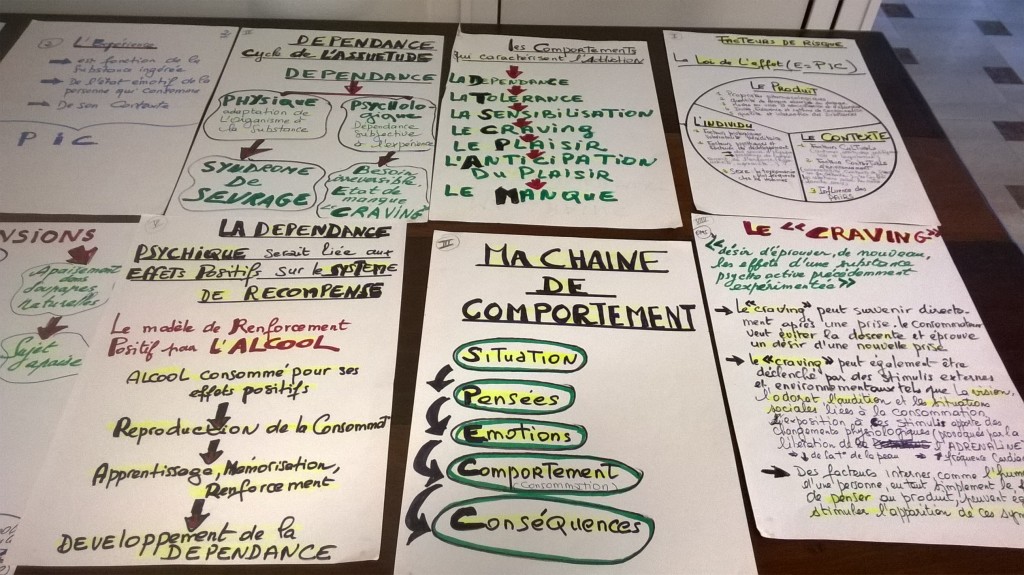 L'Expérience
→ est fonction de la
substance ingérée
→ De l'état émotif de la
personne qui consomme
→ De son Contexte
PiC
DEPENDANCE
Cycle de L'ASSUETUDE
DEPENDANCE
PHYSIQUE
adaptation de
L'Organisme et
à la substance
PSYCHOLO-
GIQUE
Dépendance
Subjective
à l'expérience
SYNDROME
De
SEVRAGE
Besoin
irréversible
Etat de
manque
"CRAVING"
Les Comportements
qui caractérisent l'Addiction
LA DEPENDANCE
LA TOLERANCE
LA SENSIBILISATION
LE CRAVING
LE PLAISIR
L'ANTICIPATION
DU PLAISIR
LE MANQUE
FACTEURS DE RISQUE
La Loi de L'effet (E=PIC)
LE PRODUIT
L'INDIVIDU
LE CONTEXTE
3 Influence des
PAIRS
NSIONS
Apaisement
des
naturelles
Sujet
Apaisé
V
LA DEPENDANCE
PSYCHIQUE serait liée aux
EFFETS Positifs sur le SYSTEME
DE RECOMPENSE
Le modèle de Renforcement
Positif pour L'ALCOOL
ALCOOL consommé pour ses
effets positifs
Reproduction de la Consommat
Apprentissage, Mémorisation,
Renforcement
DEVELOPPEMENT de la
DEPENDANCE
III
MA CHAINE
DE
COMPORTEMENT
SITUATION
Pensées
Emotions
Comportement
(Consommation)
Conséquences
LE "CRAVING"
"désir d'éprouver, de nouveau,
les effets d'une substance
psychoactive précédemment
expérimentée"
→ Le "craving" peut survenir directe-
ment après une prise. le consommateur
veut éviter la descente et éprouve
un désir d'une nouvelle prise
→ le "craving" peut également être
déclenché par des stimulis externes
et environnementaux tels que La vision,
l'odorat, l'audition et les situations
sociales liées à la consommation
L'exposition à ces stimulis apporte des
changements physiologiques provoqués par la
libération de l'ADRENALINE
↓ de la T° de la peau
→ Des facteurs internes, comme l'hum
d'une personne, ou tout simplement le
de penser au produit, peuvent ég
stimuler l'apparition de ces sym